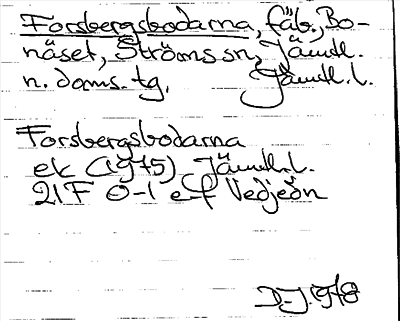 Forsbergsbodarna, fäb., Bo-
näset, Ströms sn, Jämtl.
n. doms. tg. Jämtl. l.
Forsbergsbodarna
ek (1975) Jämtl. l.
21F 0-1 e-f Vedjeön
D-J. 1978